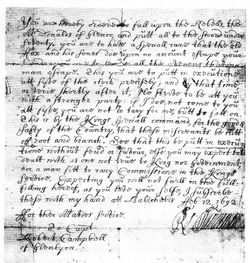 You are hereby ordered to fall upon the Rebells, the
McDonalds of Glenco, and putt all to the sword under
seventy, you are to have a speciall care that the old
fox and his sones doe upon no account escape your
hands, you are to secure all the avenues that no
man escape. This you are to putt in execution
att fyve of the clock precisely and by that time
or very shortly after it Ile strive to be att you
with a stronger party if I doe not come to you
att fyve you are not to tary for me, butt to fall on
This is by the Kings speciall command, for the good &
safty of the Country, that these miscreants be cutt
off root and branch. See that this be putt in execu
tione without feud or favour, else you may expect to be
dealt with as one not true to King nor Government
nor a man fitt to cary Commissione in the Kings
service. Expecting you will not faill in the full
filling hereof, as you love your selfe, I subscribe
these with my hand att Balicholis Feb: 12, 1692
For their Maties service
To Capt
Robert Campbell
of Glenlyon